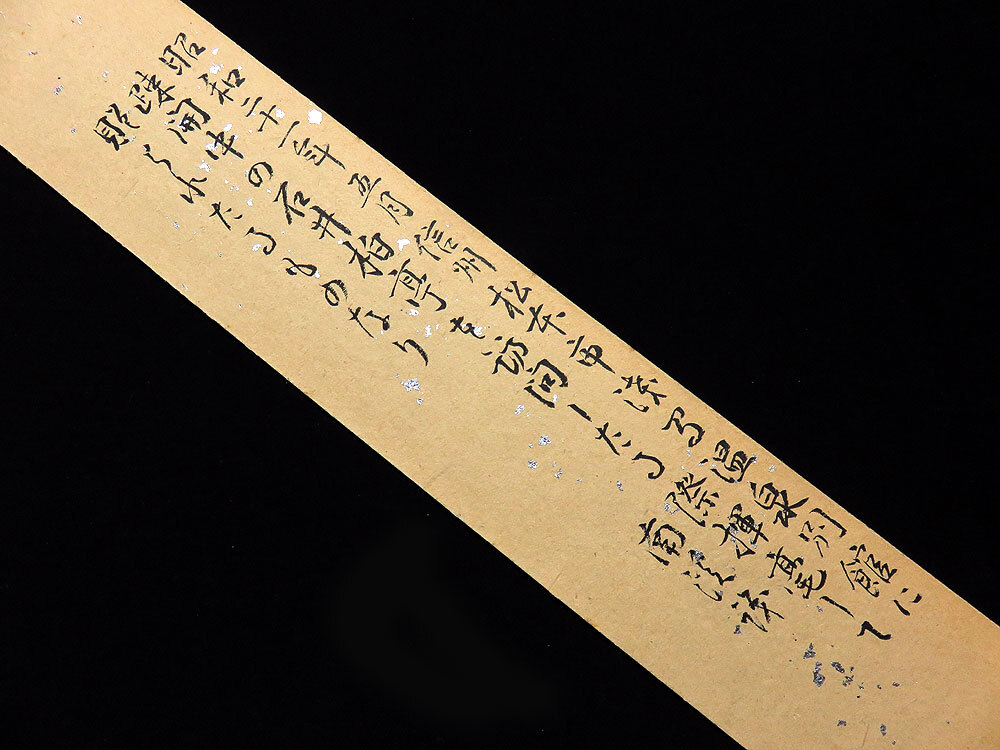 昭和二十一年五月信州松本市浅間温泉別館に
疎開中の石井柏亭を訪問したる際揮毫して
贈られたるものなり 南渓誌